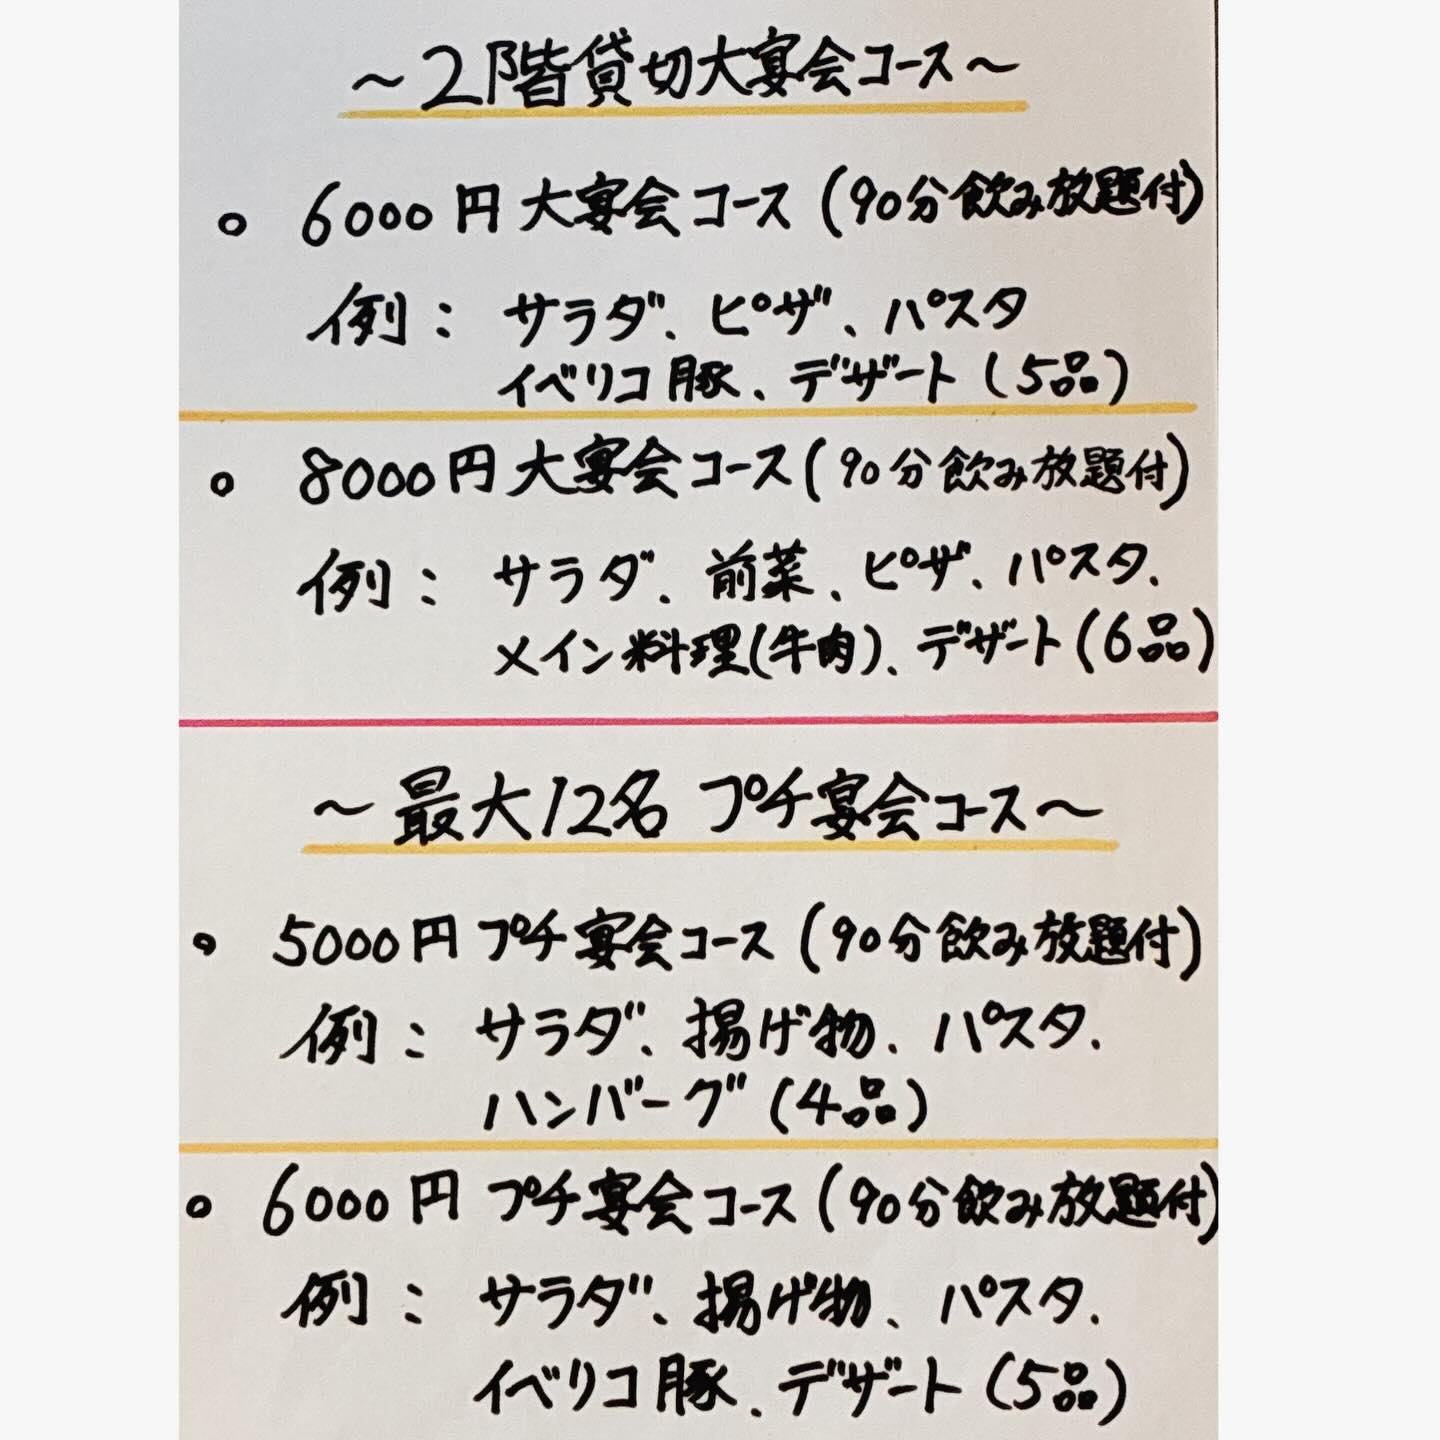 ～2階貸切大宴会コース～
○ 6000円大宴会コース(90分飲み放題付)
例：サラダ、ピザ、パスタ
イベリコ豚、デザート(5品)
○ 8000円大宴会コース(90分飲み放題付)
例：サラダ、前菜、ピザ、パスタ、
メイン料理(牛肉)、デザート(6品)
～最大12名 プチ宴会コース～
○ 5000円 プチ宴会コース(90分飲み放題付)
例：サラダ、揚げ物、パスタ、
ハンバーグ(4品)
○ 6000円 プチ宴会コース(90分飲み放題付)
例：サラダ、揚げ物、パスタ、
イベリコ豚、デザート(5品)